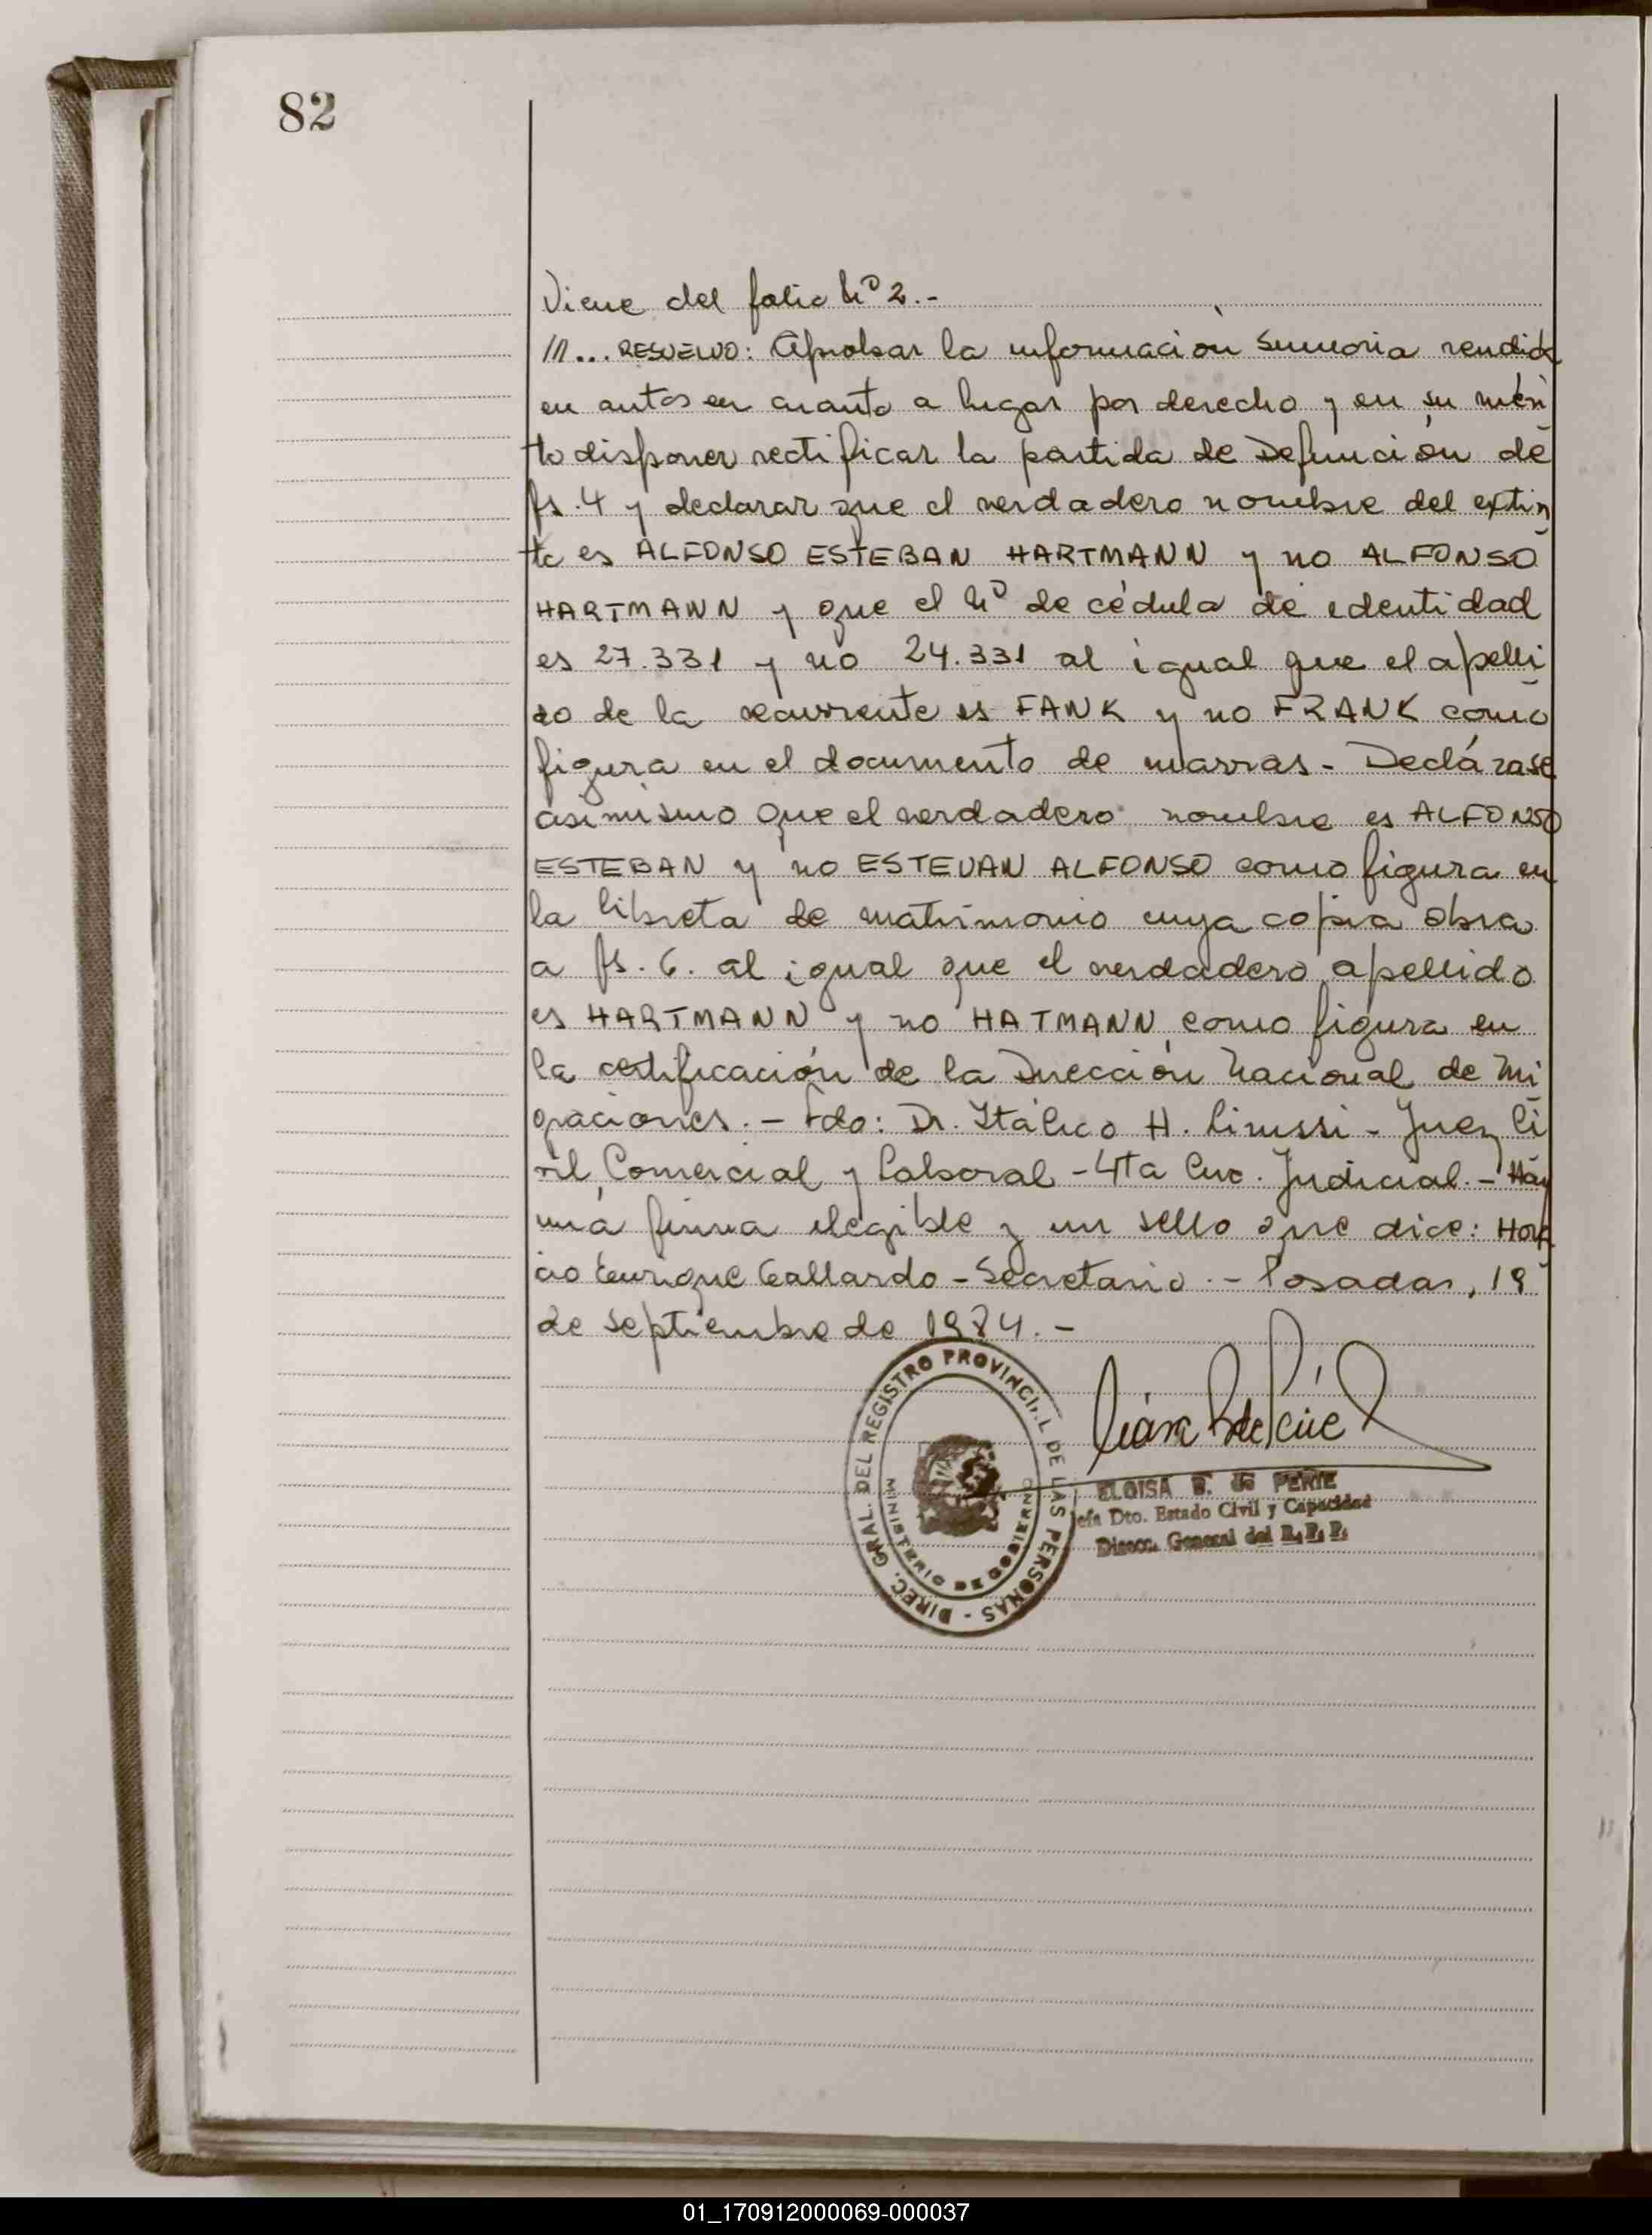 82
Viene del folio Nº 2.-
///... RESUELVO: Aprobar la información sumaria rendida
en autos en cuanto a lugar por derecho y en su méri
to disponer rectificar la partida de Defunción de
fs. 4 y declarar que el verdadero nombre del extin
to es ALFONSO ESTEBAN HARTMANN y no ALFONSO
HARTMANN y que el Nº de cédula de identidad
es 27.331 y no 24.331 al igual que el apelli
do de la recurrente es FANK y no FRANK como
figura en el documento de marras - Declárase
asimismo que el verdadero nombre es ALFONSO
ESTEBAN y no ESTEVAN ALFONSO como figura en
la libreta de matrimonio cuya copia obra
a fs. 6. al igual que el verdadero apellido
es HARTMANN y no HATMANN como figura en
la certificación de la Dirección Nacional de Mi
graciones. - Fdo: Dr. Itálico H. - Juez Ci
vil, Comercial y Laboral - 4ta Circ. Judicial. - Hay
una firma ilegible y un sello que dice: Hora
cio Enrique Gallardo - Secretario. - Posadas, 19
de septiembre de 1984. -
DIREC. GRAL. DEL REGISTRO PROVINCIAL DE LAS PERSONAS -
MINISTERIO DE GOBIERNO
ELOISA B. de PERIE
Jefa Dto. Estado Civil y Capacidad
Direcc. General del R. P. P.
01_170912000069-000037